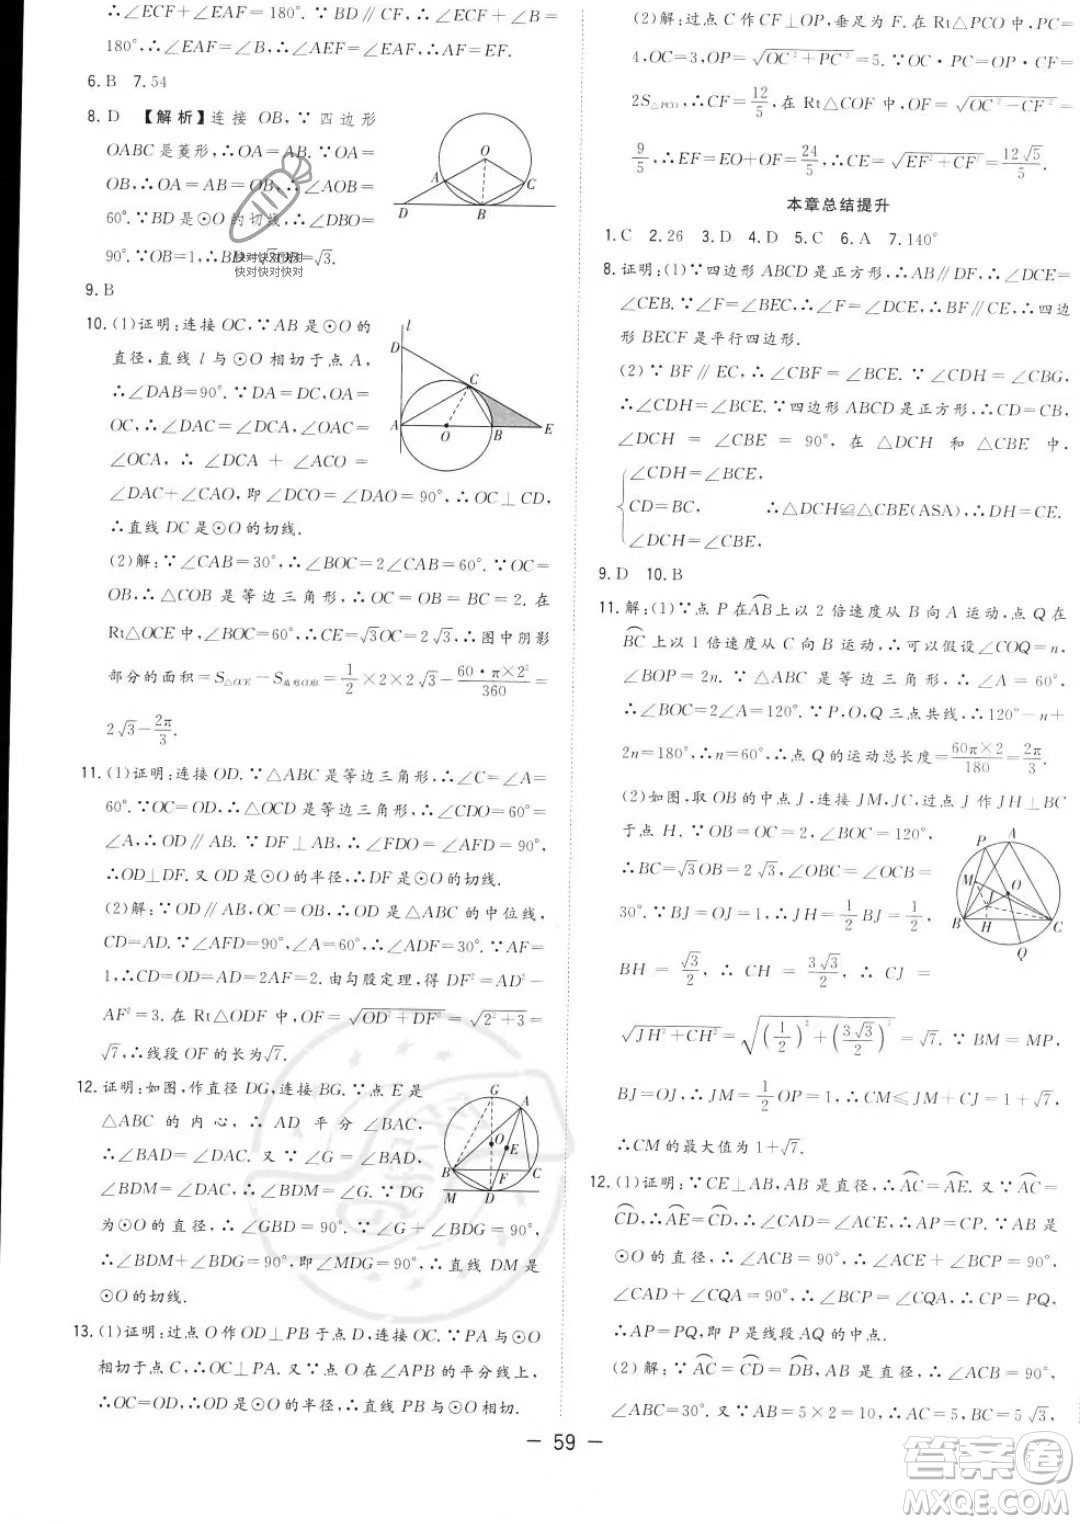 ∴∠ECF+∠EAF=180°. ∵BD∥CF, ∴∠ECF+∠B=
180°. ∴∠EAF=∠B, ∴∠AEF=∠EAF, ∴AF=EF.
6. B 7. 54
8. D 【解析】连接 OB, ∵ 四边形
OABC 是菱形, ∴OA=AB. ∵OA=
OB, ∴OA=AB=OB, ∴∠AOB=
60°. ∵BD 是⊙O 的切线, ∴∠DBO=
90°. ∵OB=1, ∴BD=√3OB=√3.
快对快对快对
快对快对快对
9. B
10. (1)证明:连接 OC, ∵AB 是⊙O 的
直径, 直线 l 与⊙O 相切于点 A,
∴∠DAB=90°. ∵DA=DC, OA=
OC, ∴∠DAC=∠DCA, ∠OAC=
∠OCA, ∴∠DCA+∠ACO=
∠DAC+∠CAO, 即∠DCO=∠DAO=90°, ∴OC⊥CD,
∴直线 DC 是⊙O 的切线.
(2)解: ∵∠CAB=30°, ∴∠BOC=2∠CAB=60°. ∵OC=
OB, ∴△COB 是等边三角形, ∴OC=OB=BC=2. 在
Rt△OCE 中, ∠BOC=60°, ∴CE=√3OC=2√3, ∴图中阴影
部分的面积=S△OCE−S扇形COB=1/2×2×2√3−60·π×2²/360=
2√3−2π/3.
11. (1)证明:连接 OD. ∵△ABC 是等边三角形, ∴∠C=∠A=
60°. ∵OC=OD, ∴△OCD 是等边三角形, ∴∠CDO=60°=
∠A, ∴OD∥AB, ∴∠FDO=∠AFD. ∵DF⊥AB, ∴∠AFD=90°,
∴OD⊥DF. 又 OD 是⊙O 的半径, ∴DF 是⊙O 的切线.
(2)解: ∵OD∥AB, OC=OB, ∴OD 是△ABC 的中位线,
CD=AD. ∵∠AFD=90°, ∠A=60°, ∴∠ADF=30°. ∵AF=
1, ∴CD=OD=AD=2AF=2. 由勾股定理, 得 DF²=AD²−
AF²=3. 在 Rt△ODF 中, OF=√(OD²+DF²)=√(2²+3)=
√7, ∴线段 OF 的长为√7.
12. 证明:如图, 作直径 DG, 连接 BG. ∵点 E 是
△ABC 的内心, ∴AD 平分∠BAC,
∴∠BAD=∠DAC. 又∵∠G=∠BAD,
∠BDM=∠DAC, ∴∠BDM=∠G. ∵DG
为⊙O 的直径, ∴∠GBD=90°. ∵∠G+∠BDG=90°,
∴∠BDM+∠BDG=90°, 即∠MDG=90°. ∴直线 DM 是
⊙O 的切线.
13. (1)证明:过点 O 作 OD⊥PB 于点 D, 连接 OC. ∵PA 与⊙O
相切于点 C, ∴OC⊥PA. 又∵点 O 在∠APB 的平分线上,
∴OC=OD, ∴OD 是⊙O 的半径, ∴直线 PB 与⊙O 相切.
(2)解:过点 C 作 CF⊥OP, 垂足为 F. 在 Rt△PCO 中, PC=
4, OC=3, OP=√(OC²+PC²)=5. ∵OC·PC=OP·CF=
2S△PCO, ∴CF=12/5, 在 Rt△COF 中, OF=√(OC²−CF²)=
9/5, ∴EF=EO+OF=24/5, ∴CE=√(EF²+CF²)=12√5/5.
本章总结提升
1. C 2. 26 3. D 4. D 5. C 6. A 7. 140°
8. 证明: (1)∵四边形 ABCD 是正方形, ∴AB∥DF, ∴∠DCE=
∠CEB. ∵∠F=∠BEC, ∴∠F=∠DCE, ∴BF∥CE, ∴四边
形 BECF 是平行四边形.
(2)∵BF∥EC, ∴∠CBF=∠BCE. ∵∠CDH=∠CBG,
∴∠CDH=∠BCE. ∵四边形 ABCD 是正方形, ∴CD=CB,
∠DCH=∠CBE=90°, 在△DCH 和△CBE 中,
∠CDH=∠BCE,
CD=BC, ∴△DCH≌△CBE(ASA), ∴DH=CE.
∠DCH=∠CBE,
9. D 10. B
11. 解: (1)∵点 P 在AB上以 2 倍速度从 B 向 A 运动, 点 Q 在
BC上以 1 倍速度从 C 向 B 运动, ∴可以假设∠COQ=n,
∠BOP=2n. ∵△ABC 是等边三角形, ∴∠A=60°,
∴∠BOC=2∠A=120°. ∵P, O, Q 三点共线, ∴120°−n+
2n=180°, ∴n=60°, ∴点 Q 的运动总长度=60π×2/180=2π/3.
(2)如图, 取 OB 的中点 J, 连接 JM, JC, 过点 J 作 JH⊥BC
于点 H. ∵OB=OC=2, ∠BOC=120°,
∴BC=√3OB=2√3, ∠OBC=∠OCB=
30°. ∵BJ=OJ=1, ∴JH=1/2BJ=1/2,
BH=√3/2, ∴CH=3√3/2, ∴CJ=
√(JH²+CH²)=√((1/2)²+(3√3/2)²)=√7. ∵BM=MP,
BJ=OJ, ∴JM=1/2OP=1, ∴CM≤JM+CJ=1+√7,
∴CM 的最大值为 1+√7.
12. (1)证明: ∵CE⊥AB, AB 是直径, ∴AC=AE. 又∵AC=
CD, ∴AE=CD, ∴∠CAD=∠ACE, ∴AP=CP. ∵AB 是
⊙O 的直径, ∴∠ACB=90°, ∴∠ACE+∠BCP=90°,
∠CAD+∠CQA=90°, ∴∠BCP=∠CQA, ∴CP=PQ,
∴AP=PQ, 即 P 是线段 AQ 的中点.
(2)解: ∵AC=CD=DB, AB 是直径, ∴∠ACB=90°,
∠ABC=30°. 又∵AB=5×2=10, ∴AC=5, BC=5√3.
D O A C B
l D C A O B E
G A O E B F C M D
P A M J O B H C Q
— 59 —
答案圈
MXQE.COM